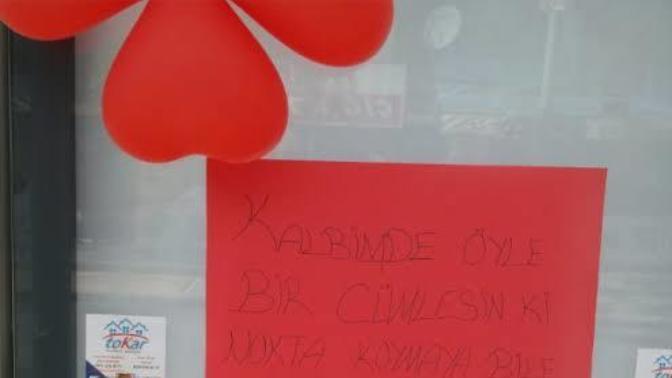 KALBİMDE ÖYLE
BİR CÜMLESİN Kİ
NOKTA KOYMAYA BİLE
toKar